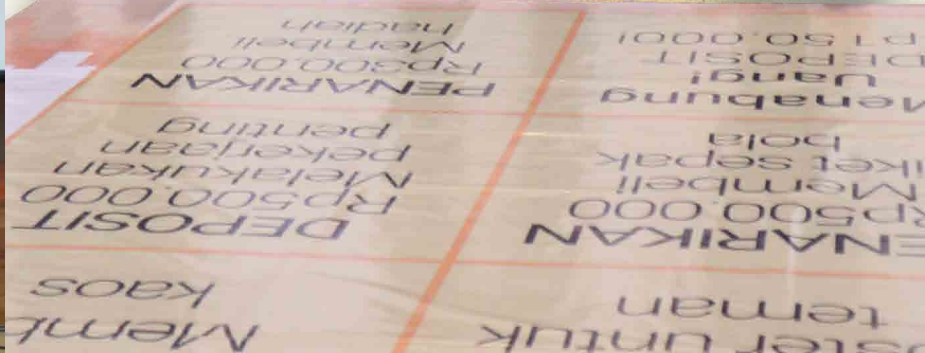 oster untuk
teman
Memb
kaos
ENARIKAN
Rp500.000
Membeli
iket sepak
bola
DEPOSIT
Rp500.000
Melakukan
pekerjaan
penting
Menabung
Uang!
DEPOSIT
p150.000!
PENARIKAN
Rp300.000
Membeli
hadiah